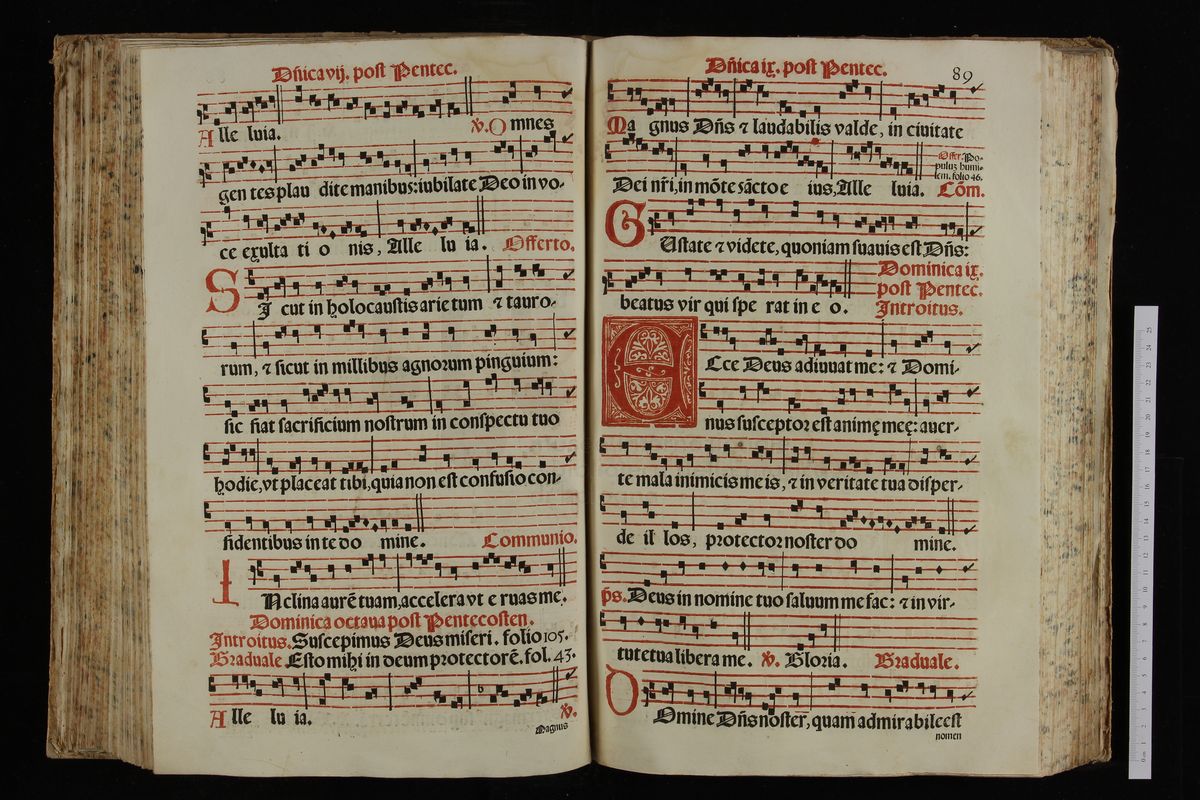 Dñica vij. post Pentec.
Alle luia. ℣. Omnes
gen tes plau dite manibus: iubilate Deo in vo-
ce exulta ti o nis, Alle lu ia. Offerto.
SI cut in holocaustis arie tum ⁊ tauro-
rum, ⁊ sicut in millibus agnorum pinguium:
sic fiat sacrificium nostrum in conspectu tuo
hodie, vt placeat tibi, quia non est confusio con-
fidentibus in te do mine. Communio.
INclina aurē tuam, accelera vt e ruas me.
Dominica octaua post Pentecosten.
Introitus. Suscepimus Deus miseri. folio 105.
Graduale Esto mihi in deum protectorē. fol. 43.
Alle lu ia. ℣.
Magnus
Dñica ix. post Pentec. 89
Ma gnus Dñs ⁊ laudabilis valde, in ciuitate
Offer. Po-
puluȝ humi-
lem. folio 46.
Dei nr̃i, in mōte sācto e ius, Alle luia. Cōm.
GUstate ⁊ videte, quoniam suauis est Dñs:
beatus vir qui spe rat in e o.
Dominica ix.
post Pentec.
Introitus.
ECce Deus adiuuat me: ⁊ Domi-
nus susceptor est animę meę: auer-
te mala inimicis me is, ⁊ in veritate tua disper-
de il los, protector noster do mine.
ps. Deus in nomine tuo saluum me fac: ⁊ in vir-
tute tua libera me. ℣. Gloria. Graduale.
DOmine Dñs noster, quam admirabile est
nomen